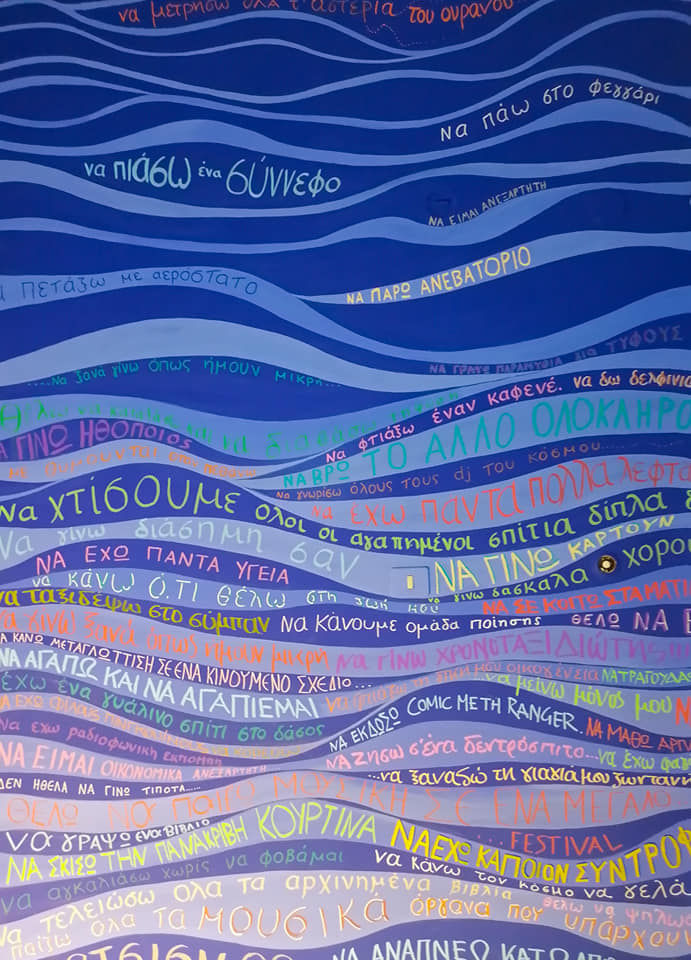 να μετρήσω όλα τ' αστέρια του ουρανού
να πάω στο φεγγάρι
να πιάσω ένα σύννεφο
ΝΑ ΕΙΜΑΙ ΑΝΕΞΑΡΤΗΤΗ
πετάξω με αερόστατο
ΝΑ ΠΑΡΩ ΑΝΕΒΑΤΟΡΙΟ
ΝΑ ΓΡΑΨΩ ΠΑΡΑΜΥΘΙΑ ΓΙΑ ΤΥΦΟΥΣ
....να ξανά γίνω όπως ήμουν μικρή...
να δω δελφίνια
Να φτιάξω έναν καφενέ.
ΓΙΝΩ ΗΘΟΠΟΙΟΣ
ΝΑ ΒΡΩ ΤΟ ΑΛΛΟ ΟΛΟΚΛΗΡΟ
να γνωρίσω όλους τους dj του κόσμου......
να έχω πάντα πολλά λεφτά
Να χτίσουμε όλοι οι αγαπημένοι σπίτια δίπλα
Να γίνω διάσημη σαν
ΝΑ ΓΙΝΩ ΚΑΡΤΟΥΝ
ΝΑ ΕΧΩ ΠΑΝΤΑ ΥΓΕΙΑ
να γίνω δασκάλα χορού
να κάνω ό,τι θέλω στη ζωή μου
να ταξιδέψω στο σύμπαν
να κάνουμε ομάδα ποίησης
ΘΕΛΩ ΝΑ
να γίνω ξανά όπως ήμουν μικρή
να γίνω ΧΡΟΝΟΤΑΞΙΔΙΩΤΗΣ
ΝΑ ΚΑΝΩ ΜΕΤΑΓΛΩΤΤΙΣΗ ΣΕ ΕΝΑ ΚΙΝΟΥΜΕΝΟ ΣΧΕΔΙΟ...
ΝΑ ΑΓΑΠΩ ΚΑΙ ΝΑ ΑΓΑΠΙΕΜΑΙ
να μείνω μόνος μου
έχω ένα γυάλινο σπίτι στο δάσος
ΝΑ ΕΚΔΩΣΩ COMIC ΜΕ ΤΗ RANGER.
ΝΑ ΜΑΘΩ
Να έχω ραδιοφωνική εκπομπή
ΝΑ ΖΗΣΩ σ'ένα δεντρόσπιτο...
να έχω
ΝΑ ΕΙΜΑΙ ΟΙΚΟΝΟΜΙΚΑ ΑΝΕΞΑΡΤΗΤΗ
...να ξαναδώ τη γιαγιά μου ζωντανή
ΔΕΝ ΗΘΕΛΑ ΝΑ ΓΙΝΩ ΤΙΠΟΤΑ.....
ΘΕΛΩ ΝΑ ΠΑΙΞΩ ΜΟΥΣΙΚΗ ΣΕ ΕΝΑ ΜΕΓΑΛΟ
....FESTIVAL
να γράψω ένα βιβλίο
ΝΑ ΣΚΙΣΩ ΤΗΝ ΠΑΝΑΚΡΙΒΗ ΚΟΥΡΤΙΝΑ
ΝΑ ΕΧΩ ΚΑΠΟΙΟΝ ΣΥΝΤΡΟΦ
να αγκαλιάσω χωρίς να φοβάμαι
να κάνω τον κόσμο να γελά
να τελειώσω όλα τα αρχινημένα βιβλία
θέλω να ψηλώσω
παίξω όλα τα μουσικά όργανα που υπάρχουν
ΝΑ ΑΝΑΠΝΕΩ ΚΑΤΩ ΑΠΟ